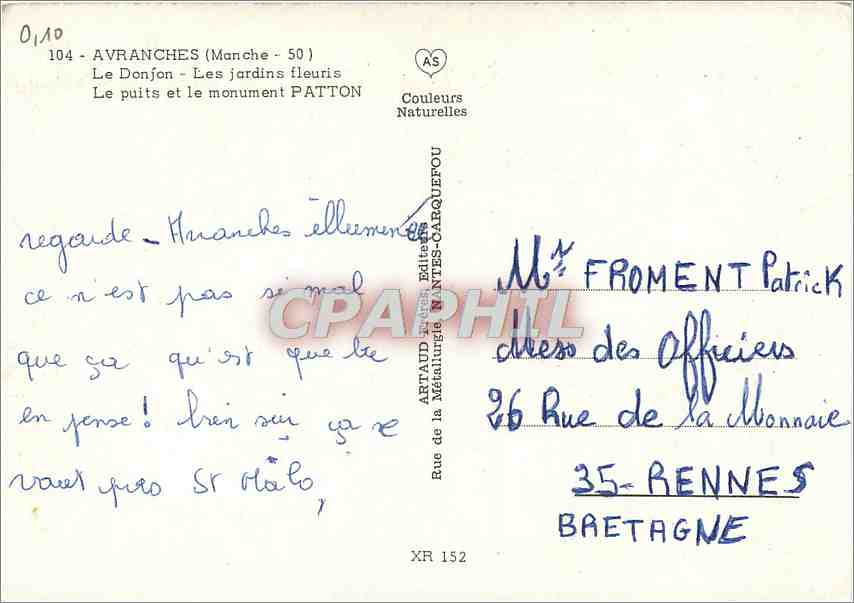 0,10
104 - AVRANCHES (Manche - 50)
Le Donjon - Les jardins fleuris
Le puits et le monument PATTON
AS
Couleurs
Naturelles
regarde - Avranches illuminée
ce n'est pas si mal
que ça qu'est que te
en pense! bien sûr ça se
vaut pas St Mâlo,
ARTAUD Frères, Editeurs
Rue de la Métallurgie, NANTES-CARQUEFOU
CPAPHIL
Mr FROMENT Patrick
Mess des Officiers
26 Rue de la Monnaie
35-RENNES
BRETAGNE
XR 152